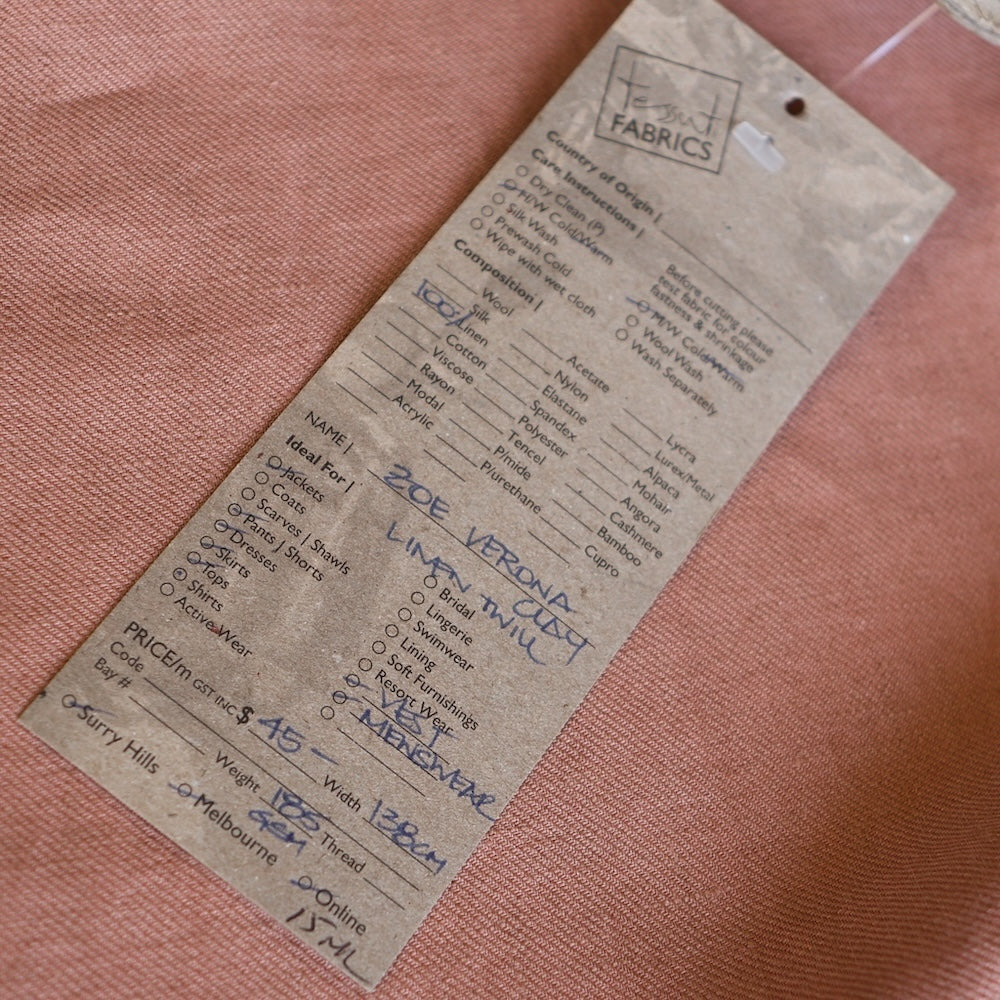 Tessuti
FABRICS
Country of Origin |
Care Instructions |
Dry Clean (P)
M/W Cold/Warm
Silk Wash
Prewash Cold
Wipe with wet cloth
Before cutting please
test fabric for colour
fastness & shrinkage
M/W Cold/Warm
Wool Wash
Wash Separately
Composition |
Wool
Silk
100% Linen
Cotton
Viscose
Rayon
Modal
Acrylic
Acetate
Nylon
Elastane
Spandex
Polyester
Tencel
P/mide
P/urethane
Lycra
Lurex/Metal
Alpaca
Mohair
Angora
Cashmere
Bamboo
Cupro
NAME | ZOE VERONA CLAY
LINEN TWILL
Ideal For |
Jackets
Coats
Scarves | Shawls
Pants | Shorts
Dresses
Skirts
Tops
Shirts
Active Wear
Bridal
Lingerie
Swimwear
Lining
Soft Furnishings
Resort Wear
VEST
MENSWEAR
PRICE/m GST INC $ 45 -
Code
Bay #
Weight 185 GSM
Width 138cm
Thread
Surry Hills
Melbourne
Online
15 ML